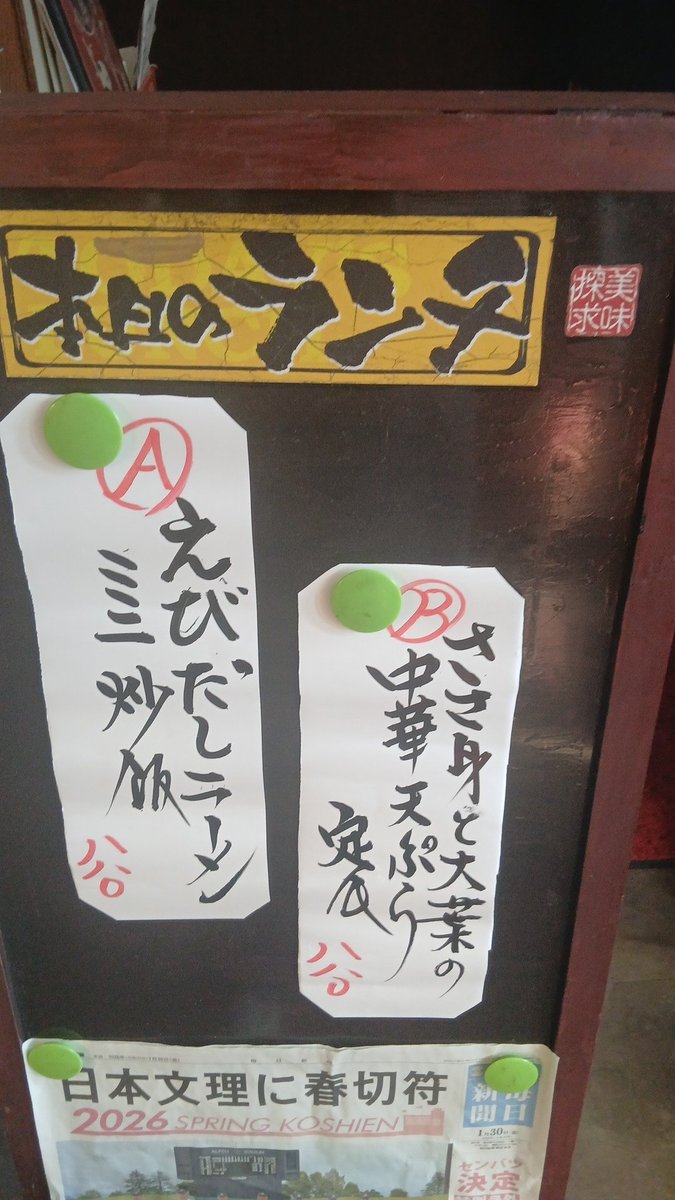 本日のランチ
美味
探求
A
えびだしラーメン
ミニ炒飯
八八〇
B
ささ身と大葉の
中華天ぷら
定食
八八〇
日本文理に春切符
2026 SPRING KOSHIEN
毎日
新聞
1月30日
センバツ
決定